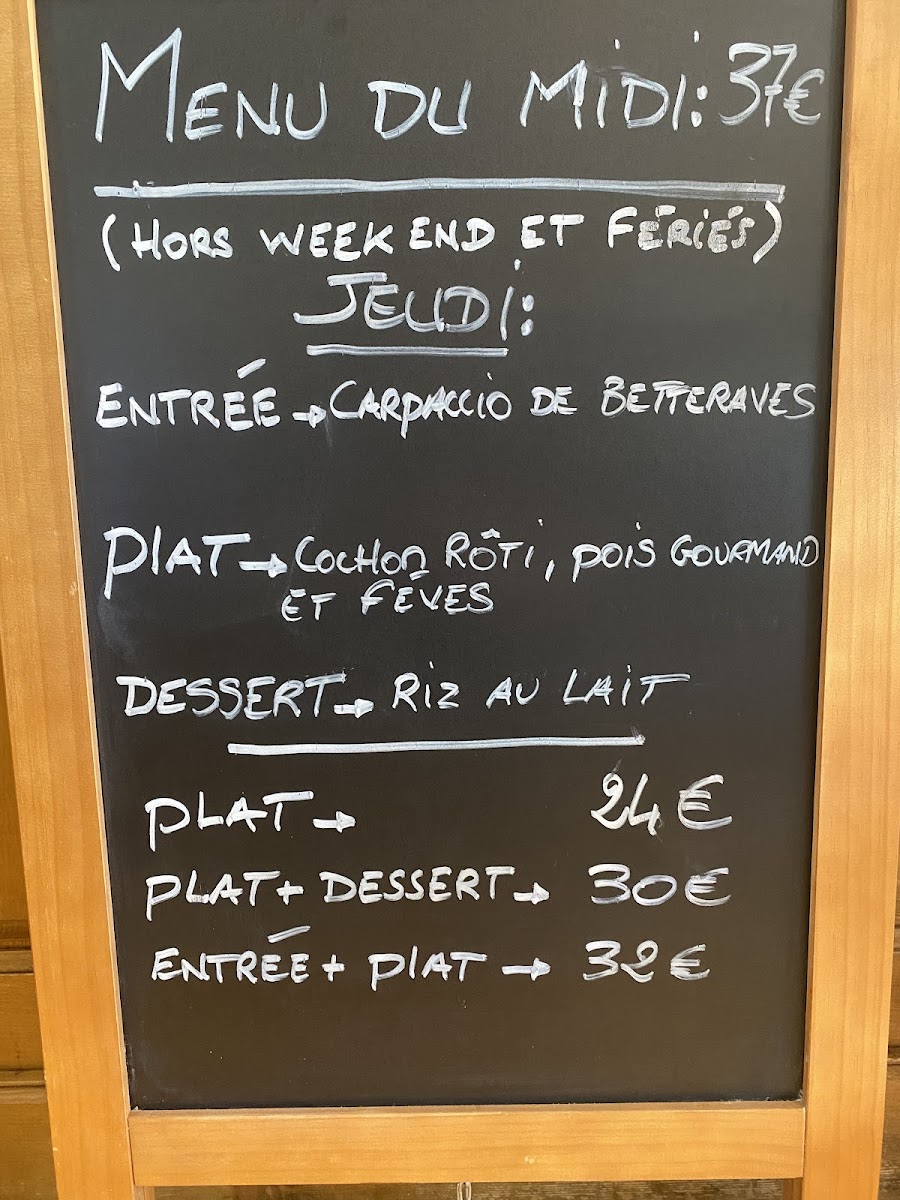 MENU DU MIDI: 37€
(HORS WEEK END ET FÉRIÉS)
JEUDI:
ENTRÉE → CARPACCIO DE BETTERAVES
PLAT → COCHON RÔTI, POIS GOURMAND
ET FÊVES
DESSERT → RIZ AU LAIT
PLAT → 24€
PLAT + DESSERT → 30€
ENTRÉE + PLAT → 32€